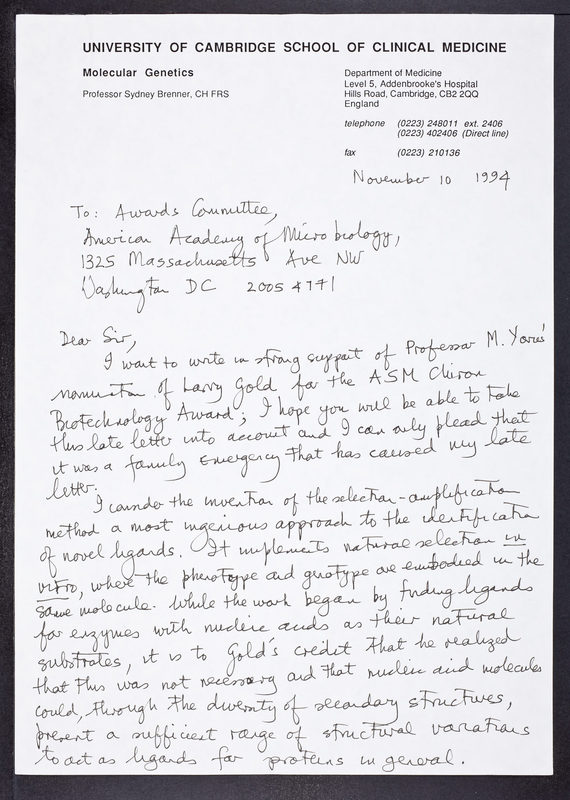 UNIVERSITY OF CAMBRIDGE SCHOOL OF CLINICAL MEDICINE
Molecular Genetics
Professor Sydney Brenner, CH FRS
Department of Medicine
Level 5, Addenbrooke's Hospital
Hills Road, Cambridge, CB2 2QQ
England
telephone (0223) 248011 ext. 2406
(0223) 402406 (Direct line)
fax (0223) 210136
November 10 1994
To: Awards Committee,
American Academy of Microbiology,
1325 Massachusetts Ave NW
Washington DC 20054171
Dear Sir,
I want to write in strong support of Professor M. Yarus'
nomination of Larry Gold for the ASM Chiron
Biotechnology Award; I hope you will be able to take
this late letter into account and I can only plead that
it was a family emergency that has caused my late
letter.
I consider the invention of the selection-amplification
method a most ingenious approach to the identification
of novel ligands. It implements natural selection in
vitro, where the phenotype and genotype are embodied in the
same molecule. While the work began by finding ligands
for enzymes with nucleic acids as their natural
substrates, it is to Gold's credit that he realized
that this was not necessary and that nucleic acid molecules
could, through the diversity of secondary structures,
present a sufficient range of structural variations
to act as ligands for proteins in general.